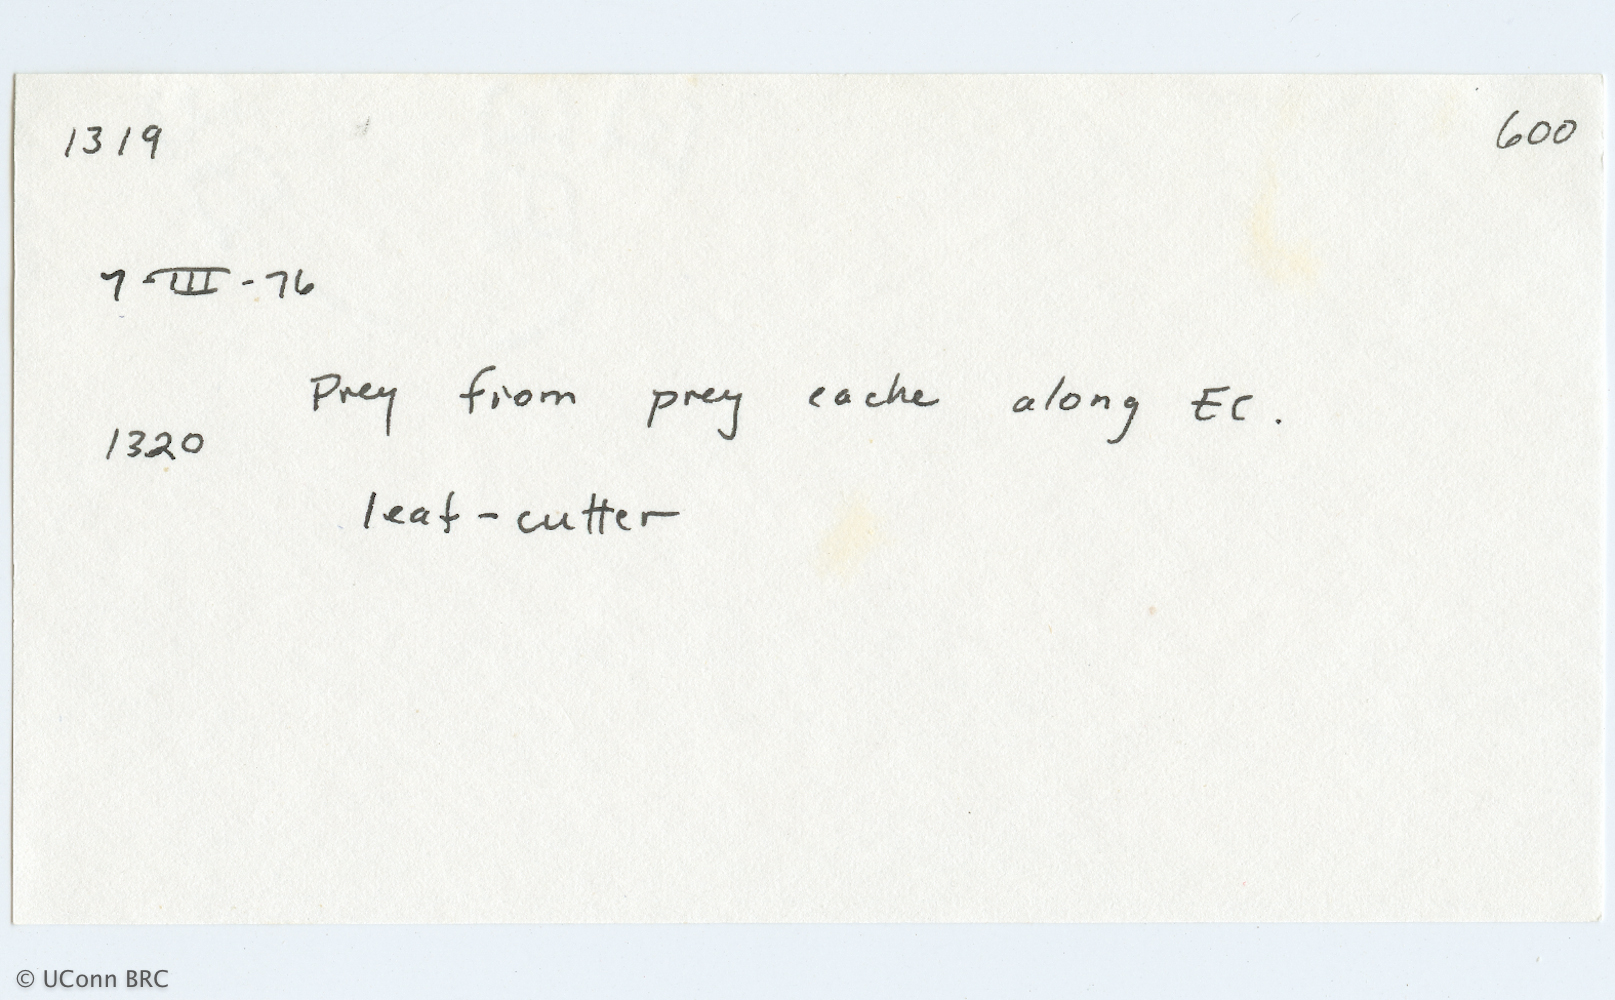 1319
600
7-III-76
Prey from prey cache along EC.
1320
leaf-cutter
© UConn BRC